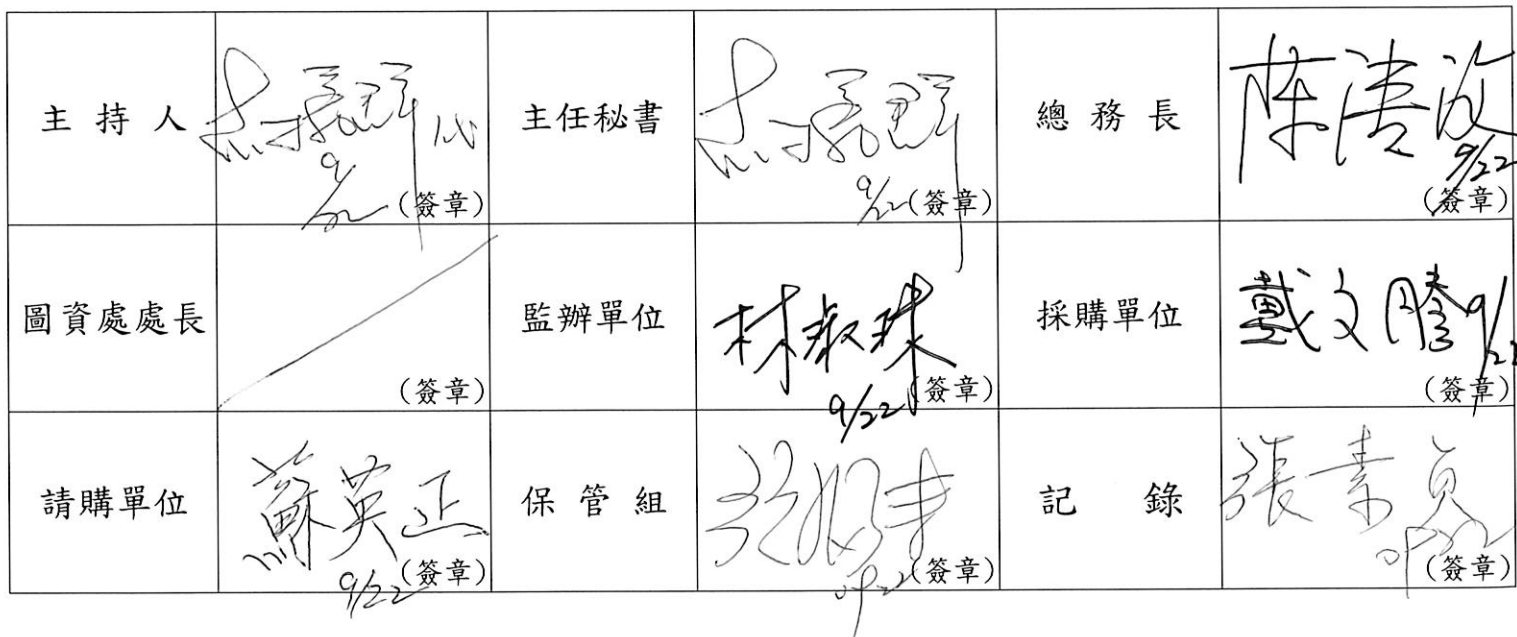 主持人 代 9/22 (簽章) 主任秘書 9/22 (簽章) 總務長 9/22 (簽章)
圖資處處長 (簽章) 監辦單位 林淑珠 9/22 (簽章) 採購單位 戴文騰 9/22 (簽章)
請購單位 蘇英正 9/22 (簽章) 保管組 0922 (簽章) 記錄 張素貞 0922 (簽章)